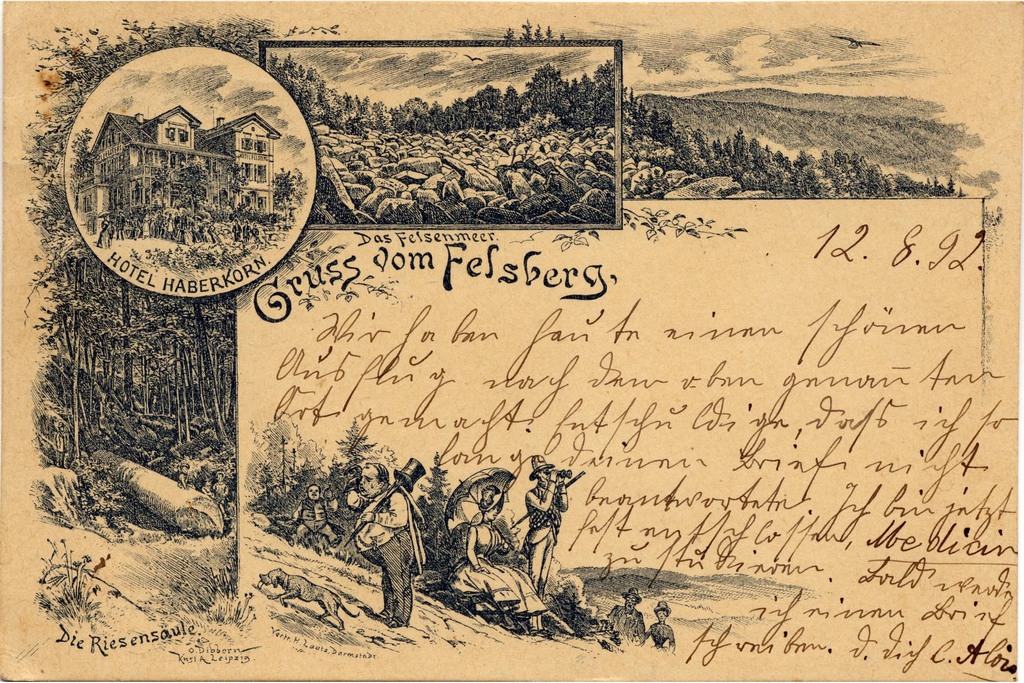 HOTEL HABERKORN
Das Felsenmeer
Gruss vom Felsberg,
12. 8. 92.
Wir haben heute einen schönen
Ausflug nach dem oben genannten
Ort gemacht. Entschuldige, dass ich so
lange deinen Brief nicht
beantwortete. Ich bin jetzt
fest entschlossen, Medicin
zu studieren. Bald werde
ich einen Brief
schreiben. d. dich l. Alois
Die Riesensäule.
O. Dibbern
Knst. A. Leipzig.
Verl. H. Lautz, Darmstadt